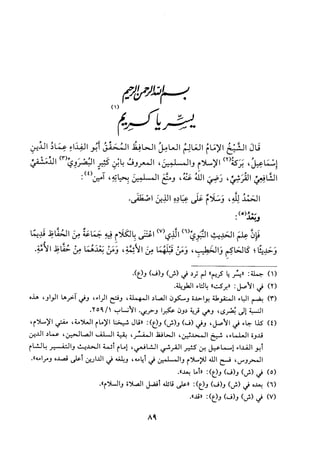 بسم الله الرحمن الرحيم
يسر يا كريم
(١)
قال الشيخ الإمام العالم العامل الحافظ المحقق أبو الفداء عماد الدين
إسماعيل، بركة(٢) الإسلام والمسلمين، المعروف بابن كثير البصروي(٣) الدمشقي
الشافعي القرشي، رضي الله عنه، ومتع المسلمين بحياته، آمين(٤):
الحمد لله، وسلام على عباده الذين اصطفى.
وبعد(٥):
فإن علم الحديث النبوي(٦) الذي(٧) اعتنى بالكلام فيه جماعة من الحفاظ قديما
وحديثا؛ كالحاكم والخطيب، ومن قبلهما من الأئمة، ومن بعدهما من حفاظ الأمة.
(١) جملة: «يسر يا كريم» لم ترد في (ش) و(ف) و(ع).
(٢) في الأصل: «بركت» بالتاء الطويلة.
(٣) بضم الباء المنقوطة بواحدة وسكون الصاد المهملة، وفتح الراء، وفي آخرها الواو، هذه
النسبة إلى بصرى، وهي قرية دون عكبرا وحربى. الأنساب ٢٥٩/١.
(٤) كذا جاء في الأصل، وفي (ف) و(ش) و(ع): «قال شيخنا الإمام العلامة، مفتي الإسلام،
قدوة العلماء، شيخ المحدثين، الحافظ المفسر، بقية السلف الصالحين، عماد الدين
أبو الفداء إسماعيل بن كثير القرشي الشافعي، إمام أئمة الحديث والتفسير بالشام
المحروس، فسح الله للإسلام والمسلمين في أيامه، وبلغه في الدارين أعلى قصده ومرامه».
(٥) في (ش) و(ف) و(ع): «أما بعد».
(٦) بعده في (ش) و(ف) و(ع): «على قائله أفضل الصلاة والسلام».
(٧) في (ش) و(ف) و(ع): «قد».
٨٩